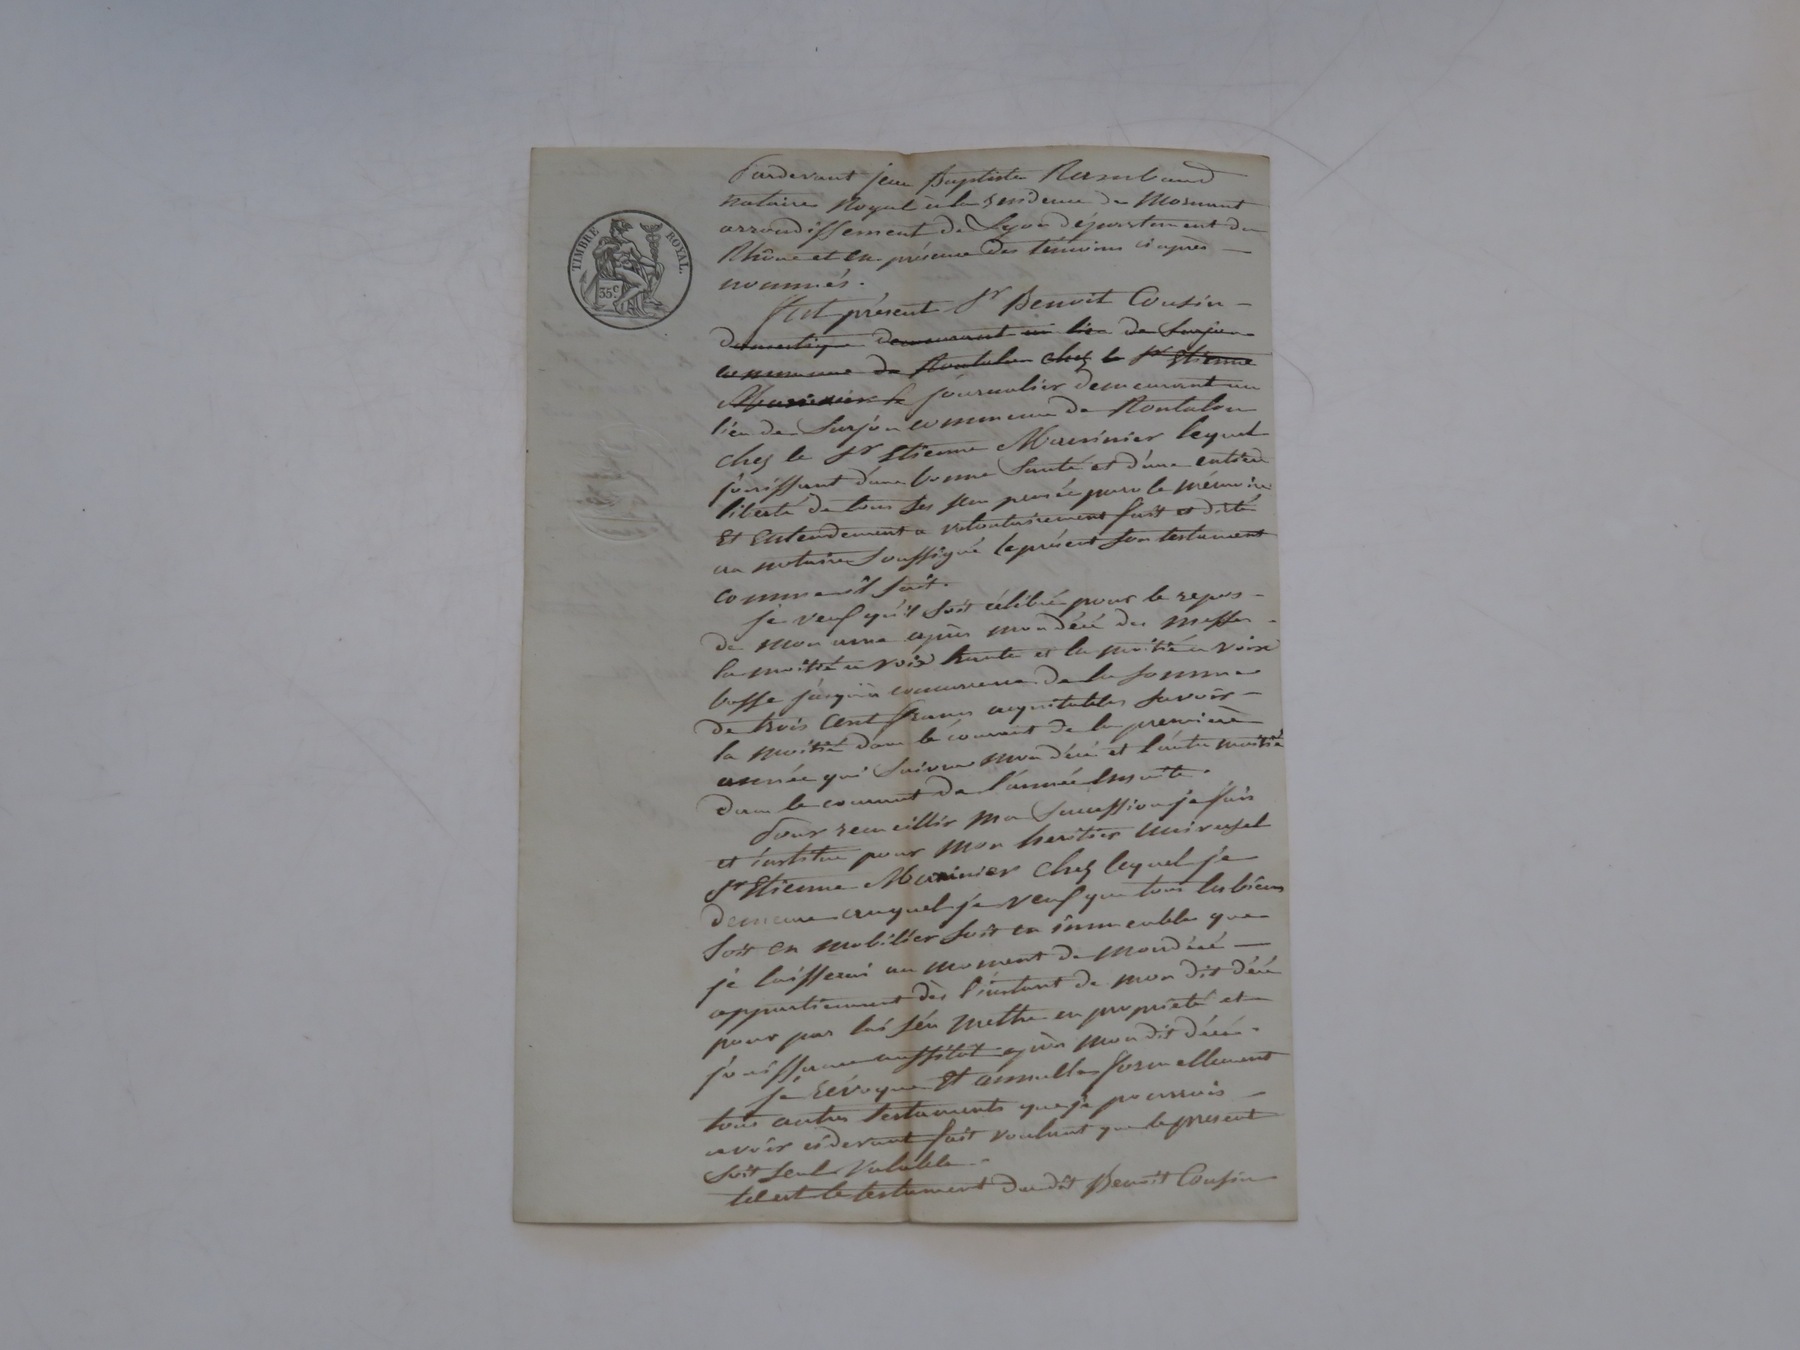 TIMBRE ROYAL.
35 c
Pardevant jean Baptiste
notaire Royal à la residence de Mornant
arrondissement de Lyon département du
Rhône et en présence des témoins ci après —
nommés.
Est présent Sr Benoit Cousin —
domestique demeurant au lieu de Surjon
commune de Rontalon chez le Sr Etienne
journalier demeurant au
lieu de Surjon commune de Rontalon
chez le Sr Etienne Maurinier lequel
jouissant d'une bonne santé et d'une entiere
liberté de tous ses sens pensée parole mémoire
Et Entendement a volontairement fait et dicté
au notaire soussigné le présent son testament
comme il suit.
je veux qu'il soit célébré pour le repos —
de mon ame après mon décé des messes —
la moitié a voix haute et la moitié a voix
basse jusqu'a concurrence de la somme
de trois cent francs acquitables savoir —
la moitié dans le courant de la première
année qui suivra mon décé et l'autre moitié
dans le courant de l'année Ensuite.
Pour recueillir ma succession je fais
et institue pour mon heritier universel
Sr Etienne Maurinier chez lequel je
demeure auquel je veux que tous les biens
soit en mobilier soit en immeuble que
je laisserai au moment de mon décé —
appartiennent dès l'instant de mon dit décé
pour par lui s'en mettre en propriété et
jouissance aussitot après mon dit décé.
je Révoque Et annulle formellement
tous autres testaments que je pourrais —
avoir cidevant fait voulant que le present
soit seul valable. —
tel est le testament du dit Benoit Cousin